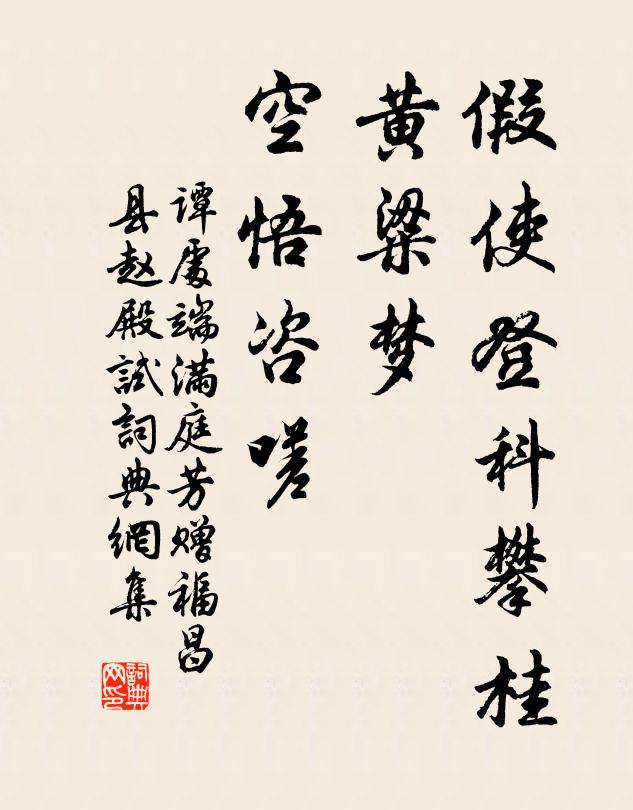 假使登科攀桂
黄粱梦
空悟咨嗟
谭處端满庭芳赠福昌
县赵殿試詞典網集
詞典
网印